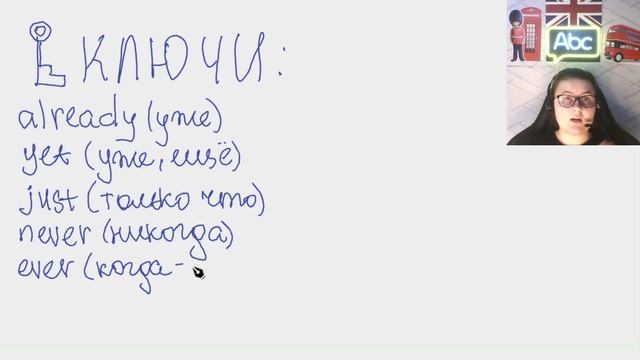 КЛЮЧИ:
already (уже)
yet (уже, ещё)
just (только что)
never (никогда)
ever (когда-
Abc